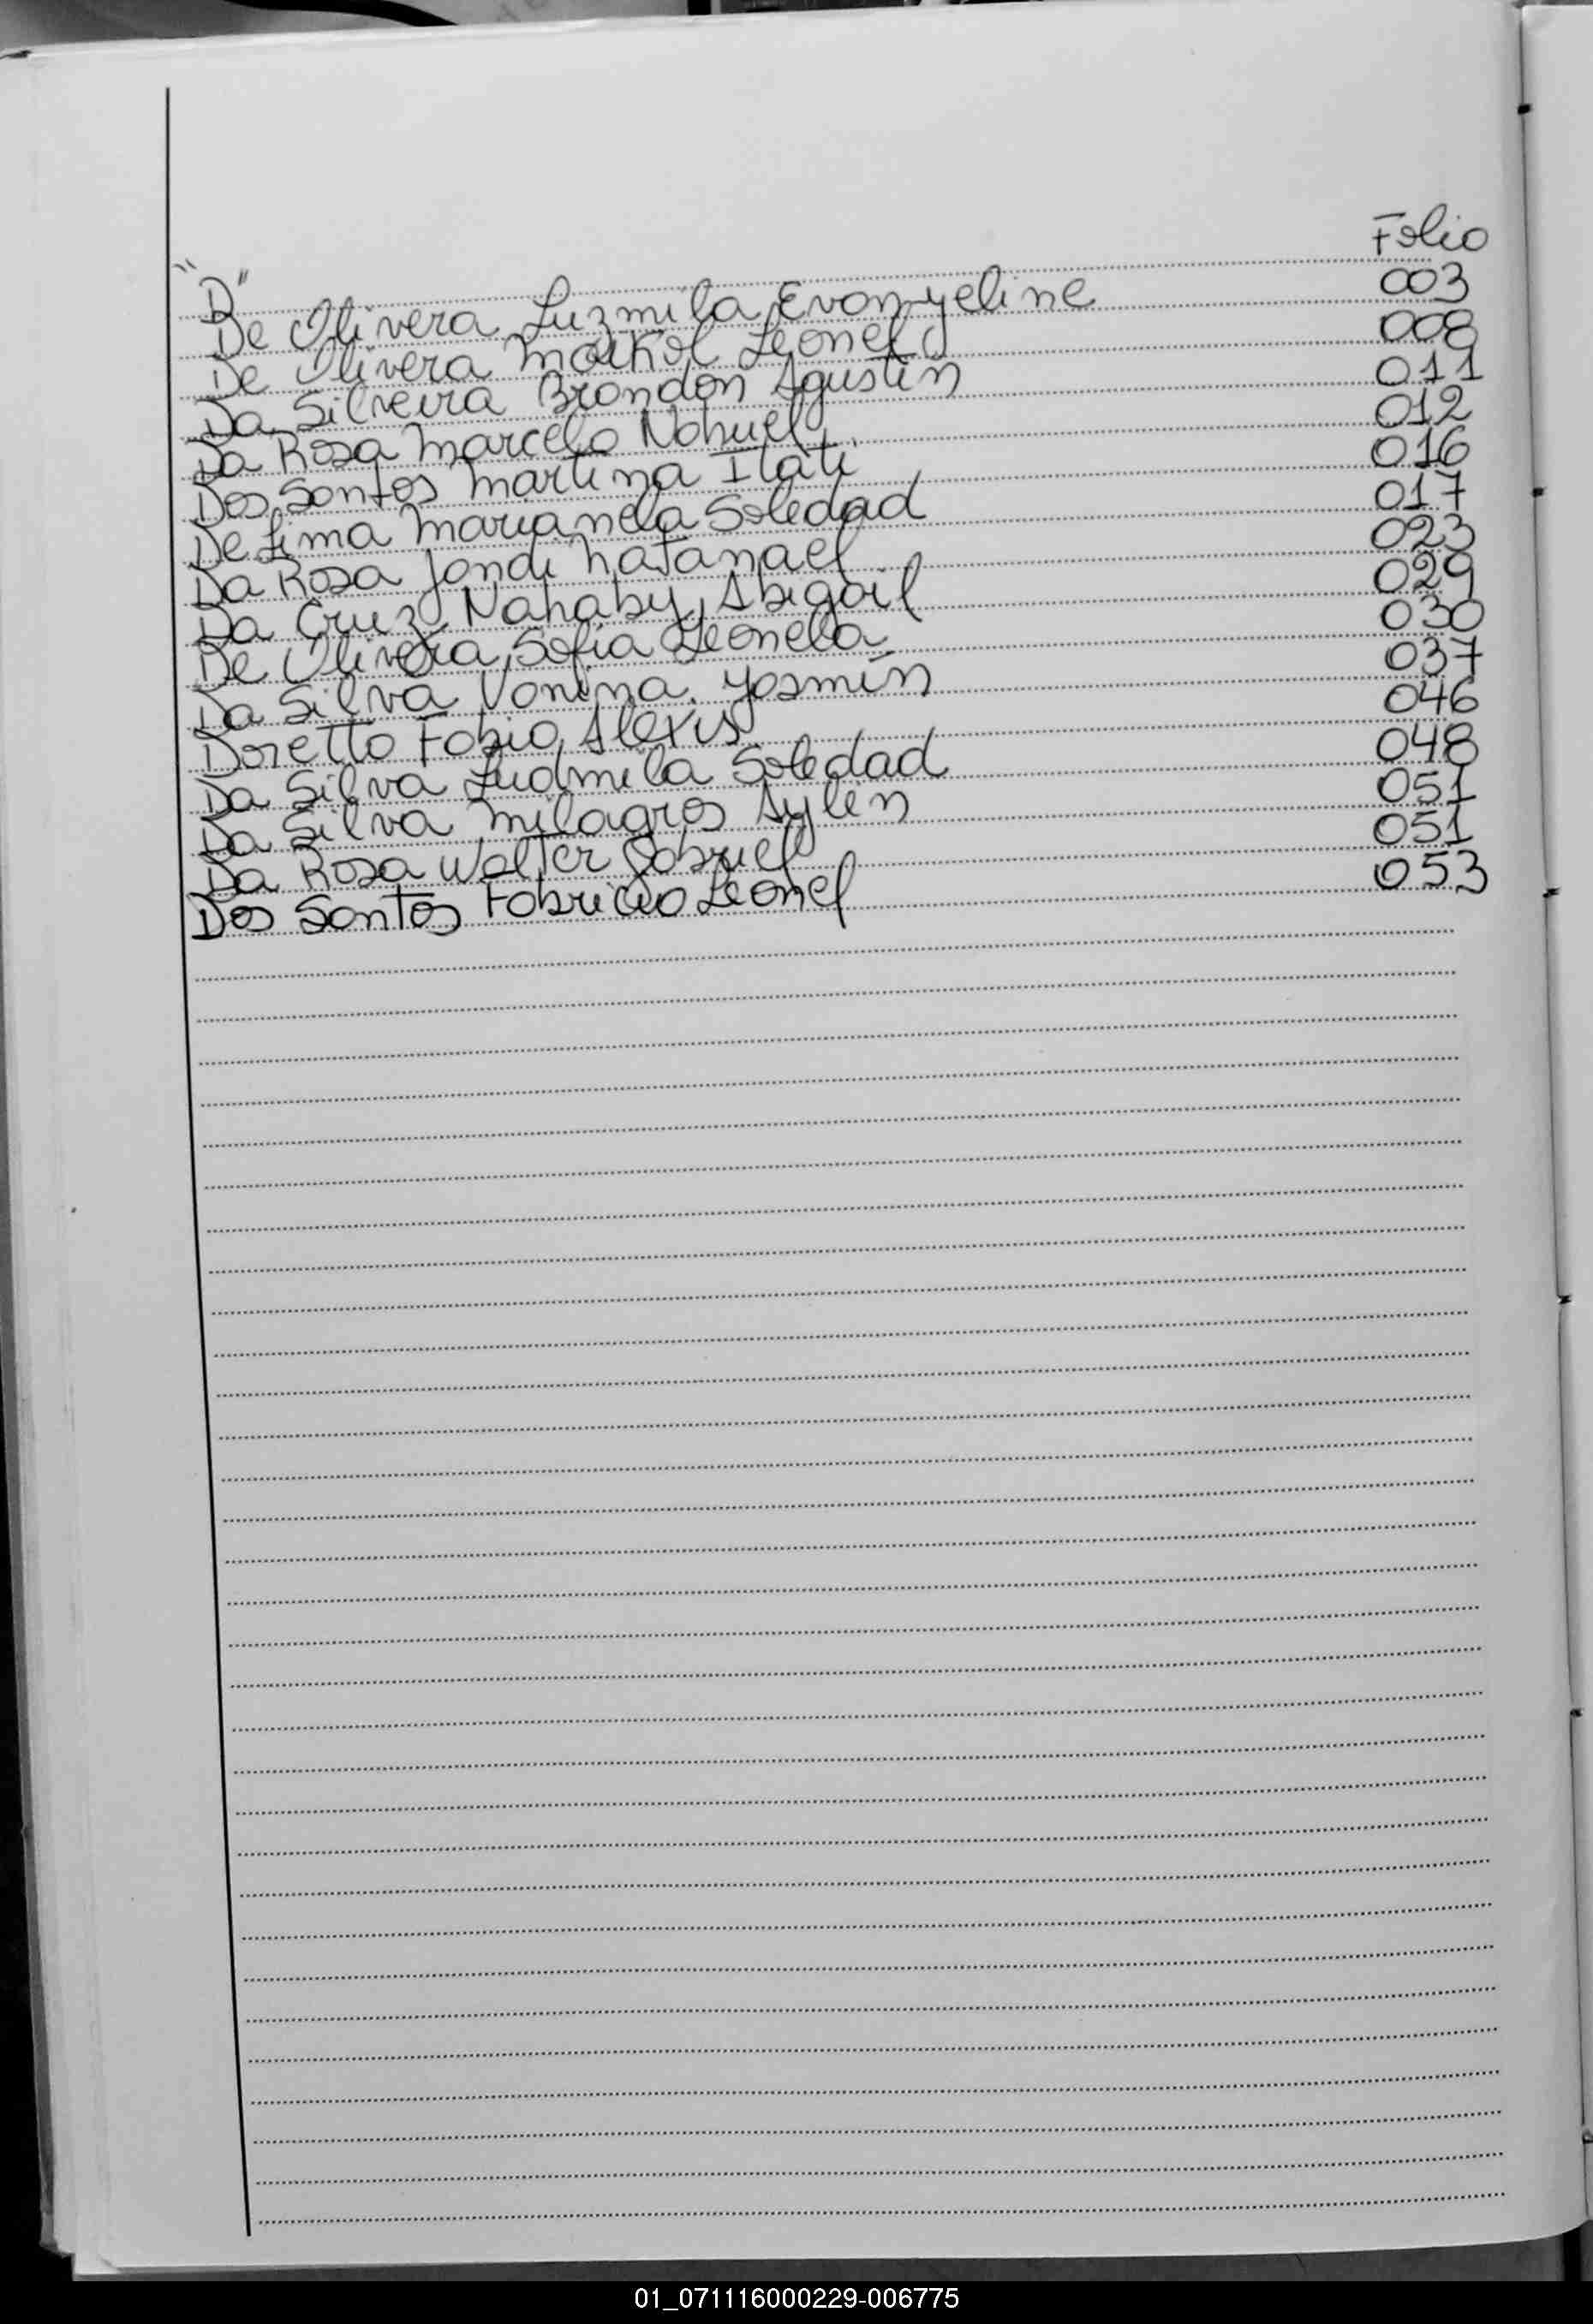 Folio
"D"
De Olivera Luzmila Evangeline 003
De Olivera Maikol Leonel 008
Da Silveira Brandon Agustín 011
Da Rosa Marcelo Nahuel 012
Dos Santos Martina Itatí 016
De Lima Marianela Soledad 017
Da Rosa Jandi Natanael 023
Da Cruz Nahaby Abigail 029
De Olivera Sofia Leonela 030
Da Silva Vanina Yasmín 037
Doretto Fabio Alexis 046
Da Silva Ludmila Soledad 048
Da Silva Milagros Aylén 051
Da Rosa Walter Gabriel 051
Dos Santos Fabricio Leonel 053
01_071116000229-006775